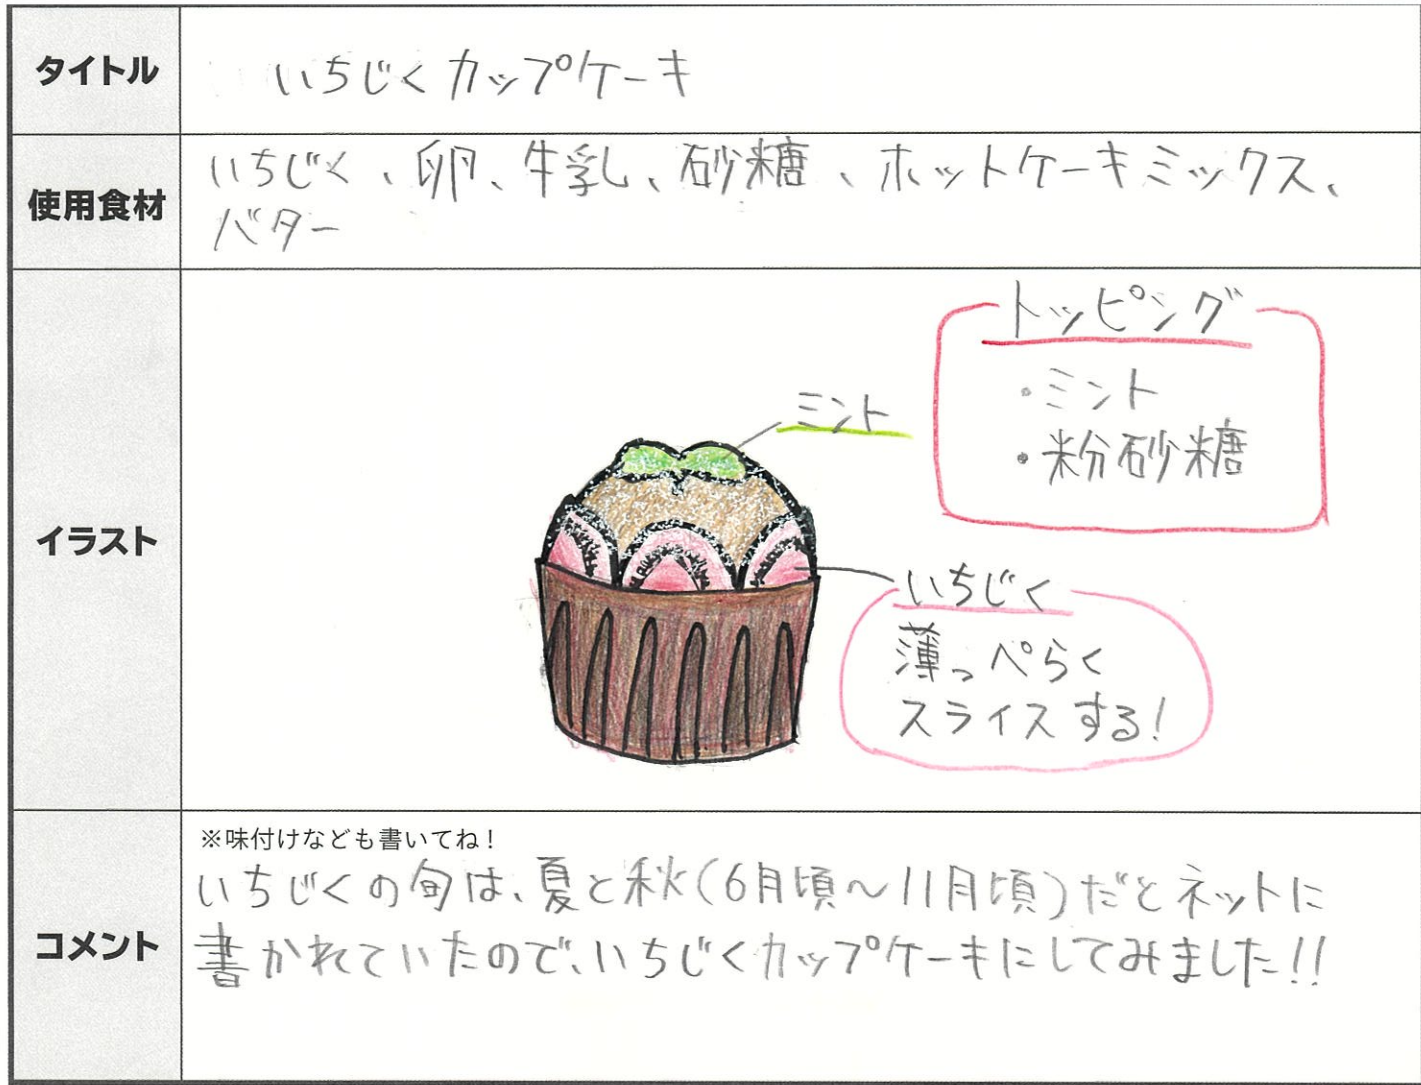 タイトル
いちじくカップケーキ
使用食材
いちじく、卵、牛乳、砂糖、ホットケーキミックス、
バター
イラスト
トッピング
・ミント
・粉砂糖
ミント
いちじく
薄っぺらく
スライスする!
コメント
※味付けなども書いてね!
いちじくの旬は、夏と秋(6月頃〜11月頃)だとネットに
書かれていたので、いちじくカップケーキにしてみました!!